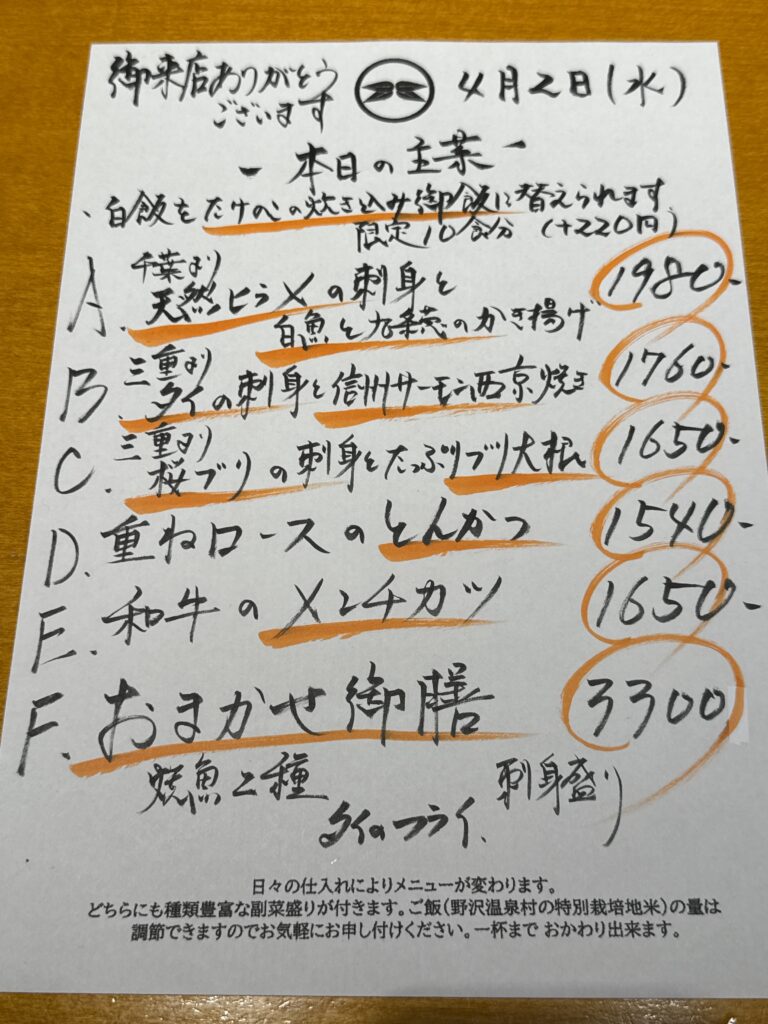 御来店ありがとう
ございます
4月2日(水)
- 本日の主菜 -
・白飯をたけのこの炊き込み御飯に替えられます
限定10食分 (+220円)
A. 千葉より
天然ヒラメの刺身と
白魚と九条葱のかき揚げ
1980-
B. 三重より
タイの刺身と信州サーモン西京焼き
1760-
C. 三重より
桜ブリの刺身とたっぷりブリ大根
1650-
D. 重ねロースのとんかつ
1540-
E. 和牛のメンチカツ
1650-
F. おまかせ御膳
3300
焼魚2種
刺身盛り
タイのフライ、
日々の仕入れによりメニューが変わります。
どちらにも種類豊富な副菜盛りが付きます。ご飯(野沢温泉村の特別栽培地米)の量は
調節できますのでお気軽にお申し付けください。一杯まで おかわり出来ます。